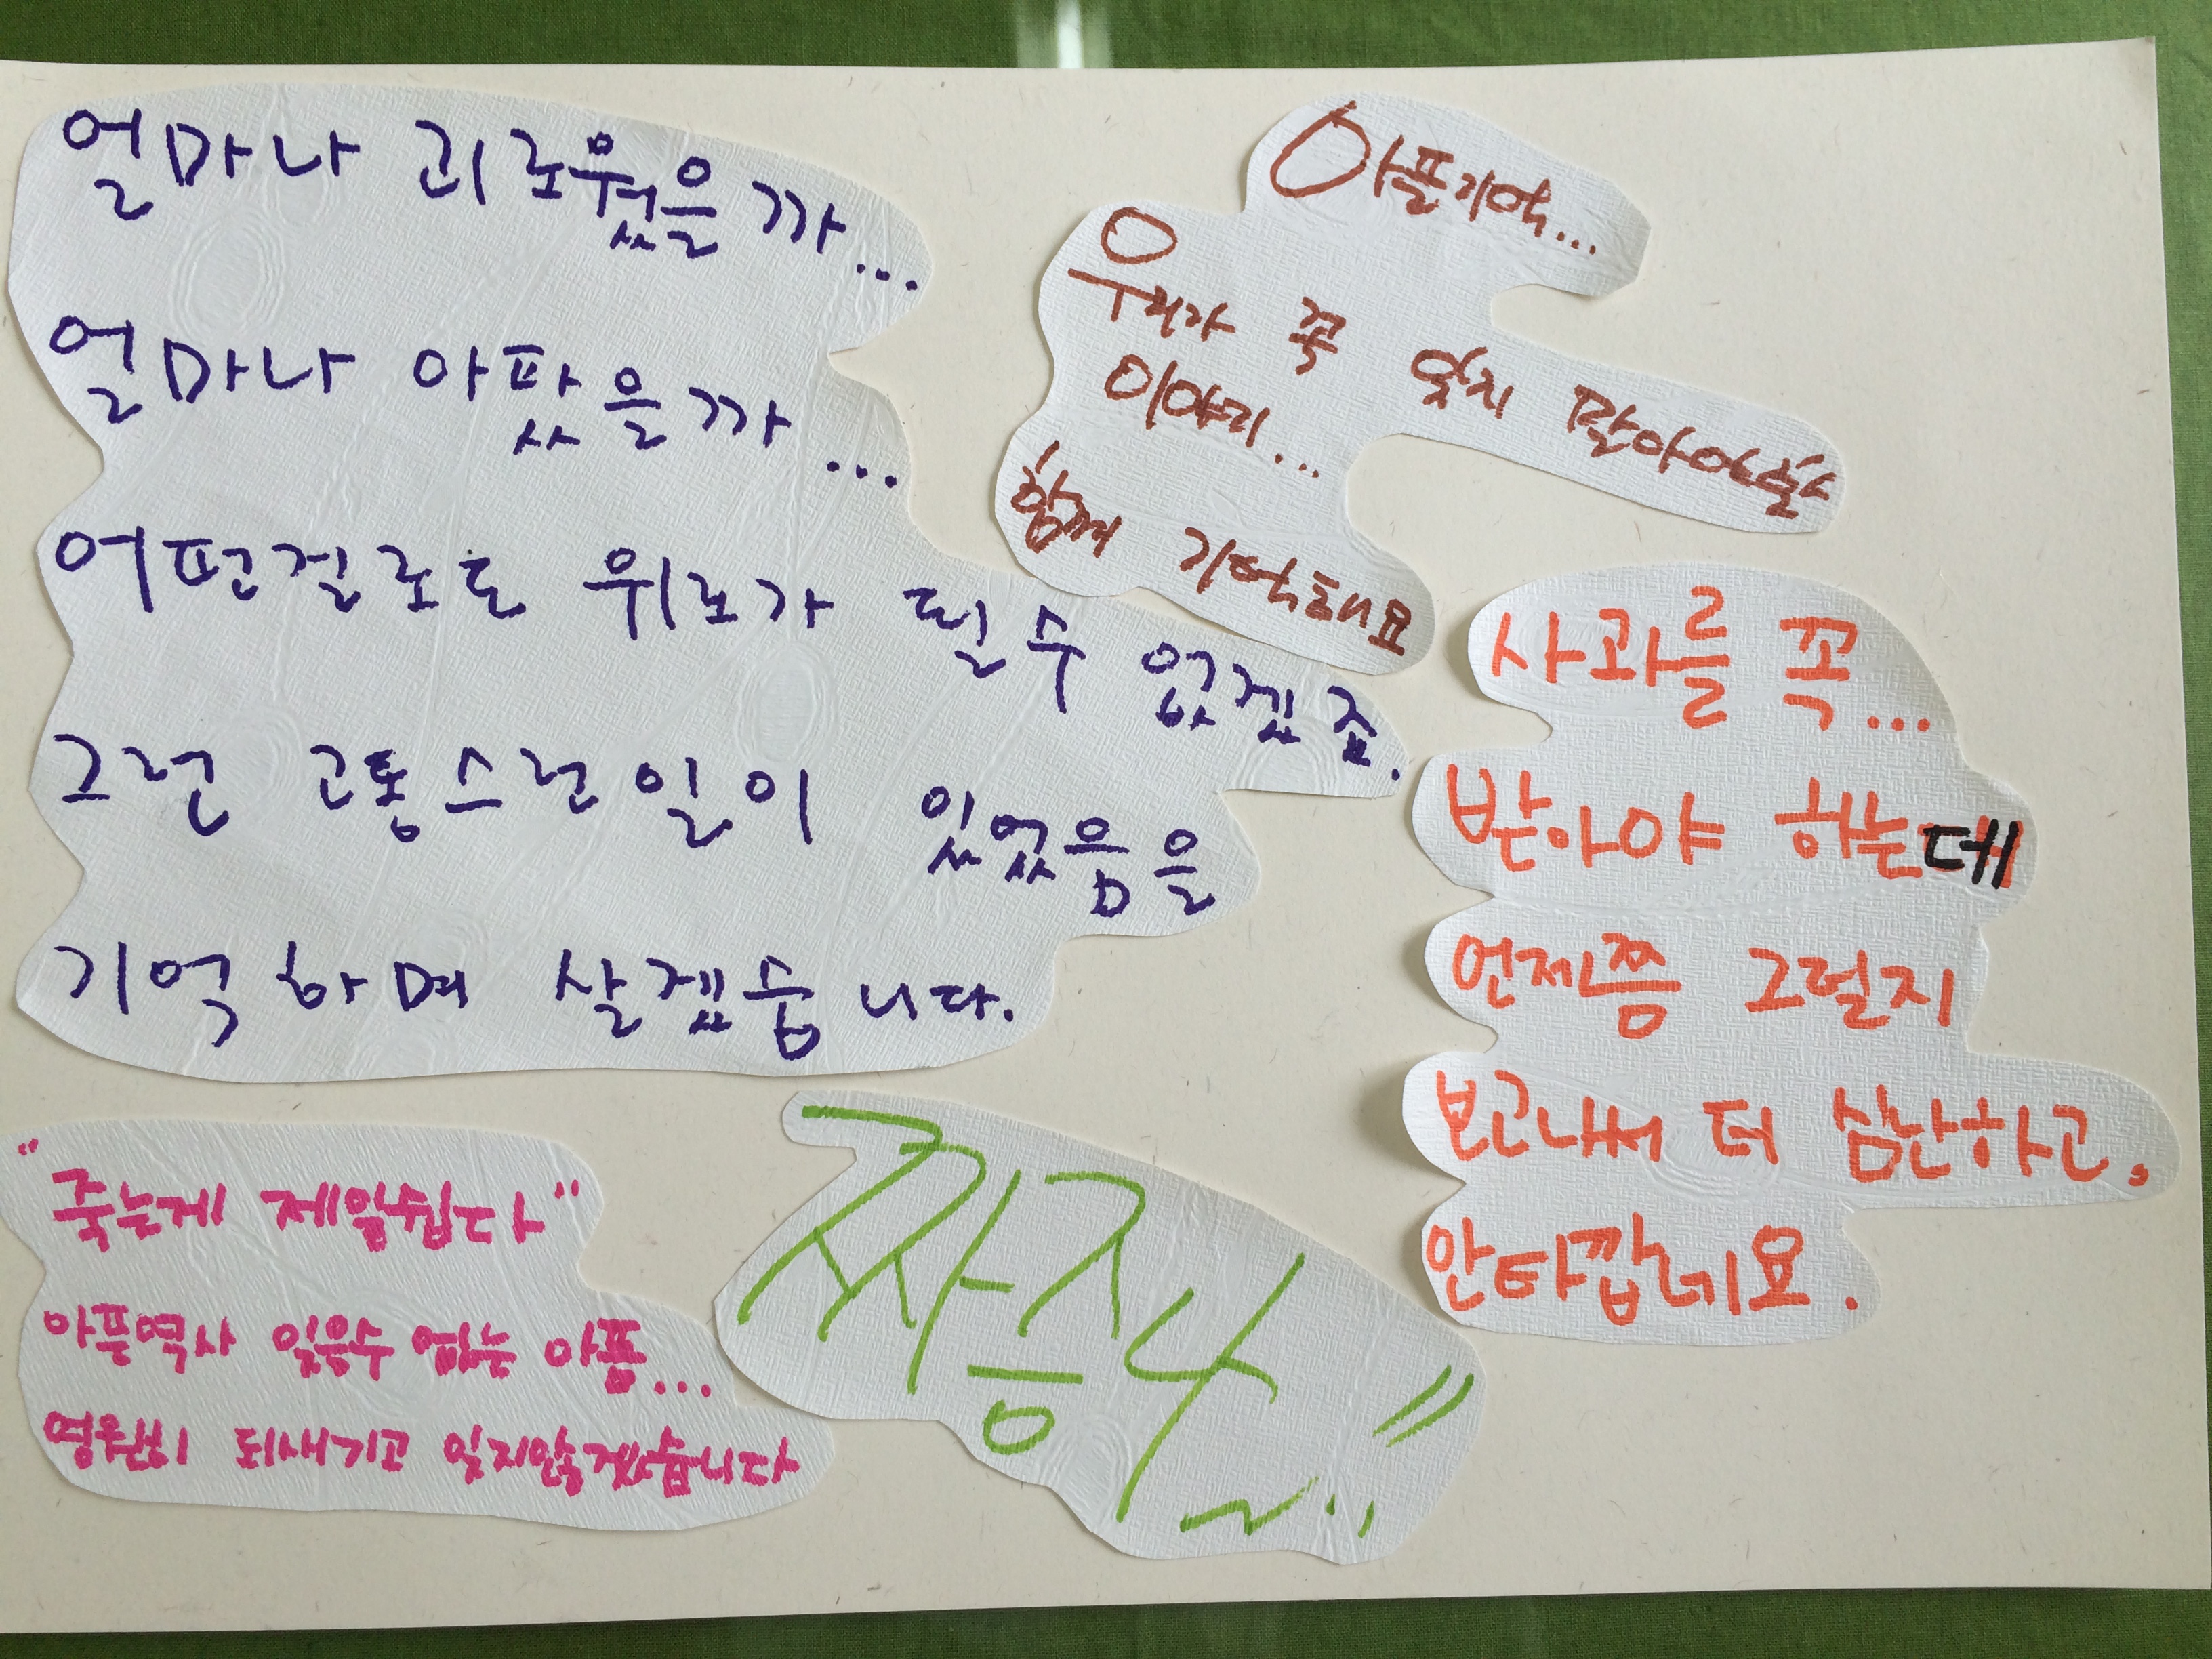 얼마나 괴로웠을까...
얼마나 아팠을까...
어떤걸로도 위로가 될수 없겠죠.
그런 고통스런일이 있었음을
기억하며 살겠습니다.
아픈기억...
우리가 꼭 잊지 말아야할
이야기...
함께 기억해요
사과를 꼭...
받아야 하는데
언제쯤 그럴지
보고나써 더 심난하고.
안타깝네요.
"죽는게 제일쉽다"
아픈역사 잊을수 없는 아픔...
영원히 되새기고 잊지않겠습니다
짜증나